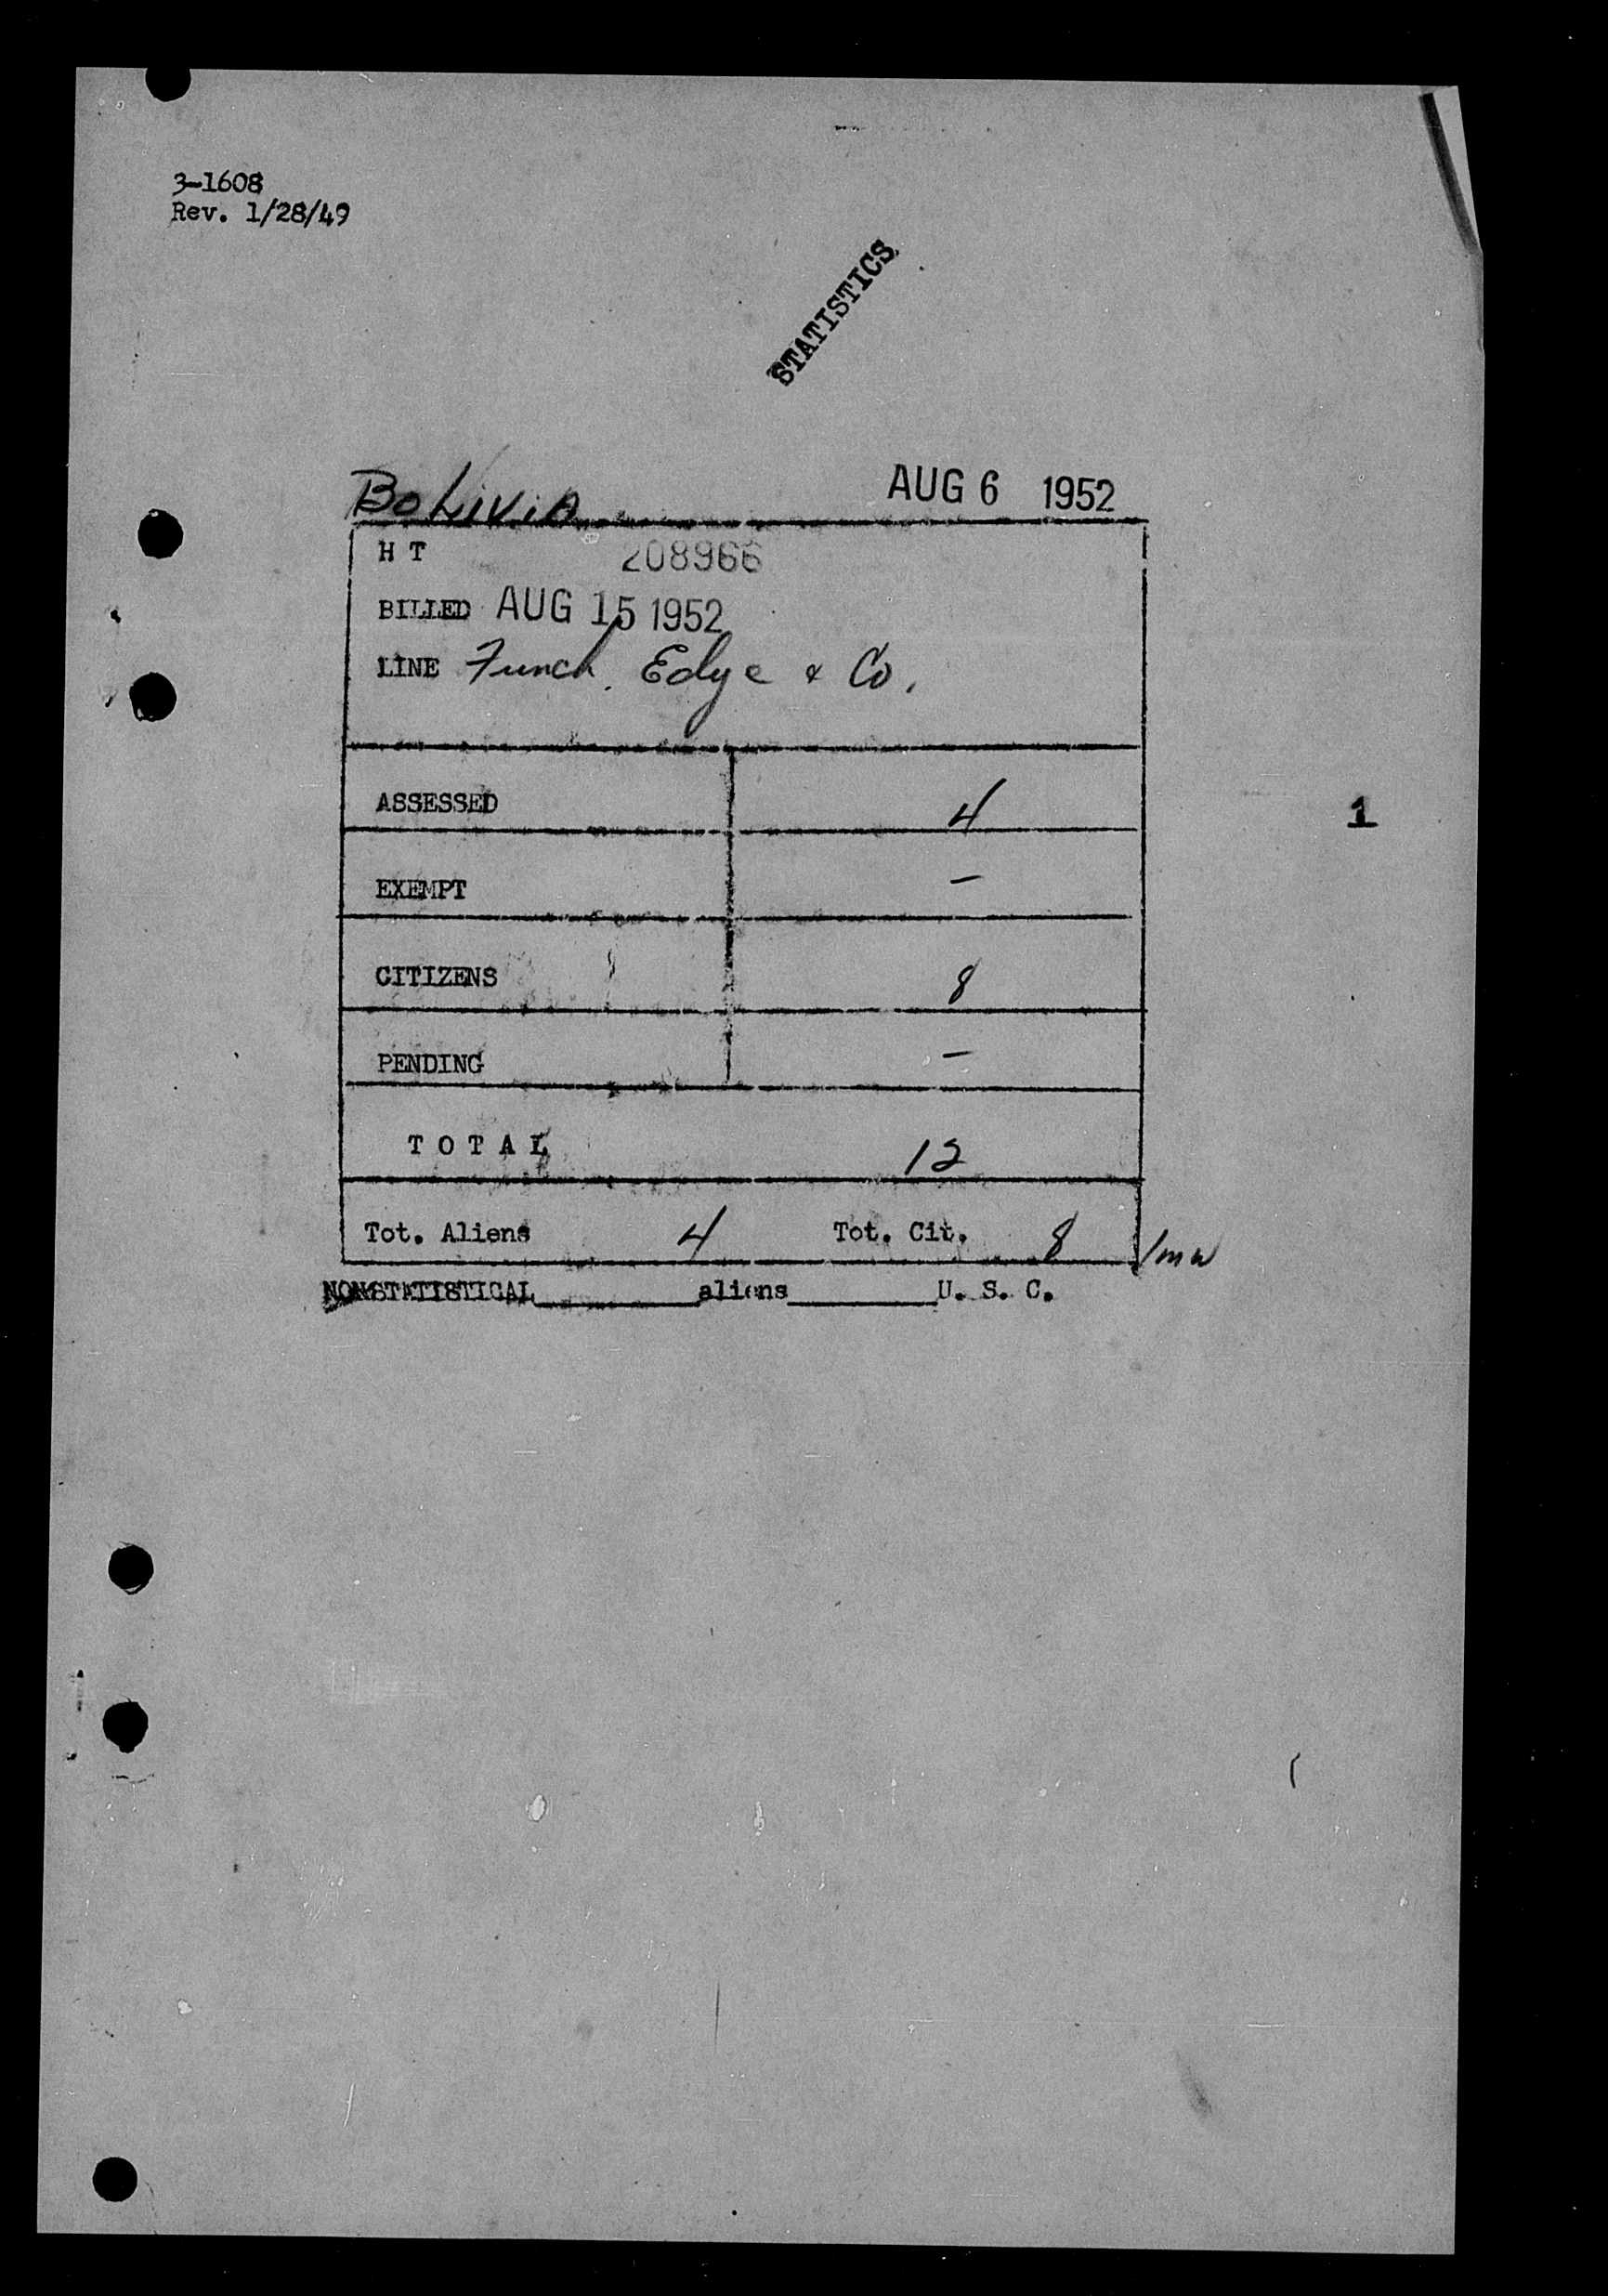 3-1608
Rev. 1/28/49
STATISTICS
BOLIVIA AUG 6 1952
H T 208966
BILLED AUG 15 1952
LINE Funch, Edye & Co.
ASSESSED 4
1
EXEMPT –
CITIZENS 8
PENDING –
T O T A L 12
Tot. Aliens 4 Tot. Cit. 8 /mw
NONSTATISTICAL__________aliens__________U. S. C.